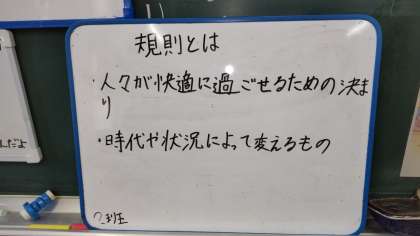 規則とは
・人々が快適に過ごせるための決ま
り
・時代や状況によって変えるもの
2班
んだよ